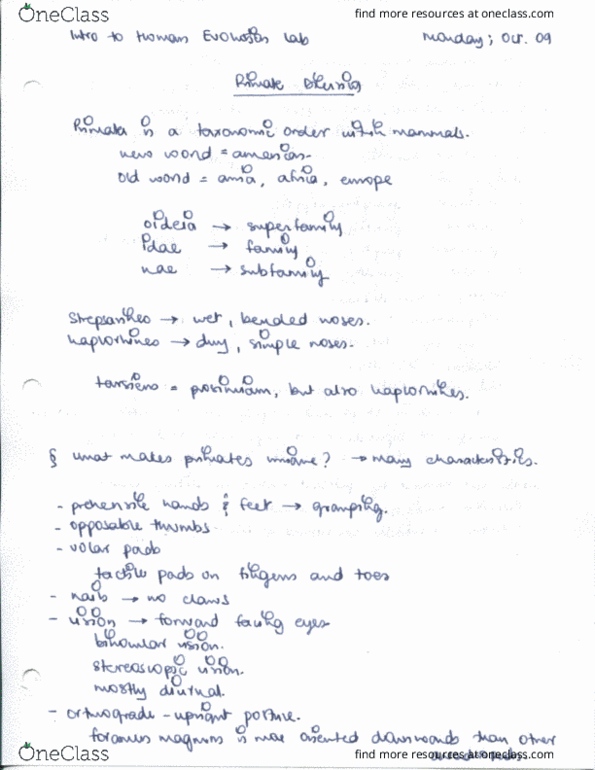 OneClass
find more resources at oneclass.com
Intro to Human Evolution Lab
Monday, Oct. 09
Primate Diversity
Primata is a taxonomic order with mammals.
new world = americas.
old world = asia, africa, europe
oideia → superfamily
idae → family
nae → subfamily
→ wet, bended noses.
haplorhines → dry, simple noses.
tarsiers = prosimian, but also haplorhines.
§ what makes primates unique? → many characteristics.
- prehensile hands & feet → grasping.
- opposable thumbs
- volar pads
tactile pads on fingers and toes
- nails → no claws
- vision → forward facing eyes
binocular vision.
stereoscopic vision.
mostly diurnal.
- orthograde - upright posture.
foramen magnum is more oriented downwards than other
OneClass
find more resources at oneclass.com